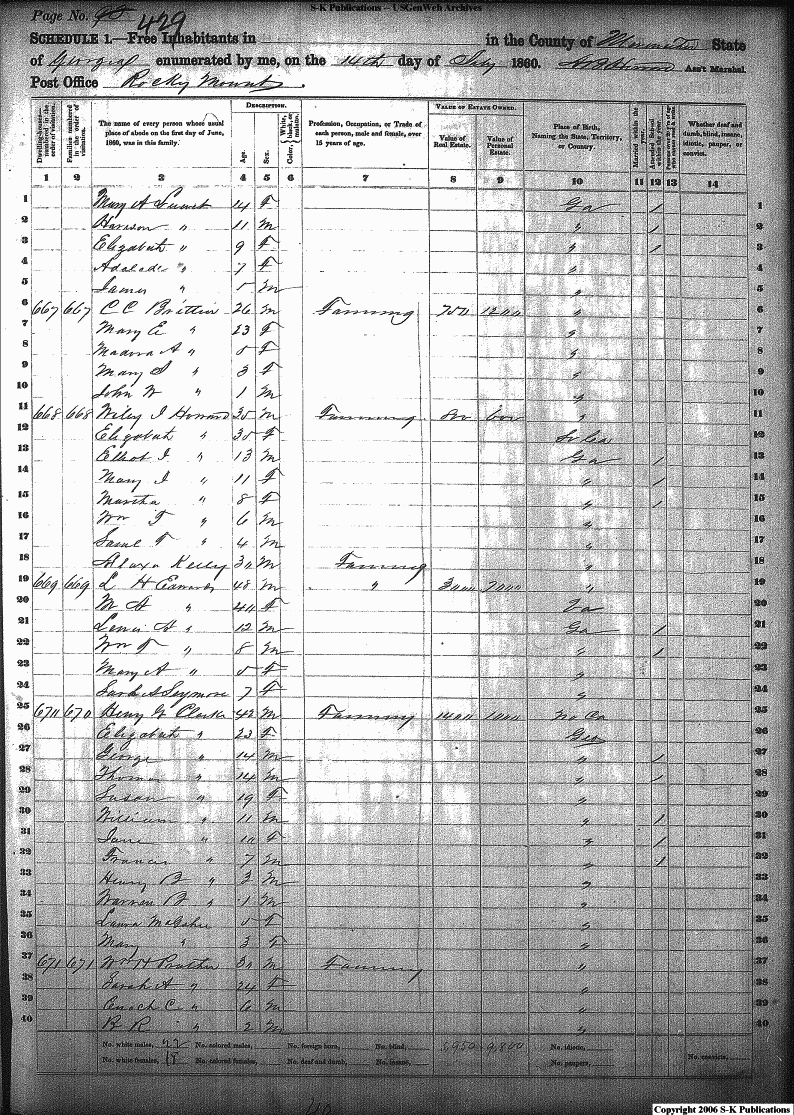 S-K Publications -- USGenWeb Archives
Page No. 95
429
SCHEDULE 1.—Free Inhabitants in in the County of State
of Georgia enumerated by me, on the 14th day of July 1860. Ass't Marshal.
Post Office Rocky Mount.
DESCRIPTION. VALUE OF ESTATE OWNED.
Dwelling-houses—numbered in the order of visitation. Families numbered in the order of visitation. The name of every person whose usual place of abode on the first day of June, 1860, was in this family. Age. Sex. Color, White, black, or mulatto. Profession, Occupation, or Trade of each person, male and female, over 15 years of age. Value of Real Estate. Value of Personal Estate. Place of Birth, Naming the State, Territory, or Country. Married within the year. Attended School within the year. Whether deaf and dumb, blind, insane, idiotic, pauper, or convict.
1 2 3 4 5 6 7 8 9 10 11 12 13 14
1 Mary A 14 F Ga / 1
2 Harrison " 11 M " / 2
3 Elizabeth " 9 F " / 3
4 Adalade " 7 F " 4
5 James " 5 M " 5
6 667 667 C C Brittin 26 M Farming 750 1200 " 6
7 Mary E " 23 F " 7
8 A " 5 F " 8
9 Mary J " 3 F " 9
10 John W " 1 M " 10
11 668 668 Wiley J Howard 35 M Farming 800 600 " 11
12 Elizabeth " 35 F So Ca 12
13 Elliot J " 13 M Ga / 13
14 Mary J " 11 F " / 14
15 Martha " 8 F " / 15
16 Wm T " 6 M " 16
17 Saml T " 4 M " 17
18 Kelley 30 M Farming " 18
19 669 669 L H Edwards 48 M " 3000 7000 " 19
20 M A " 40 F Va 20
21 Lewis A " 12 M Ga / 21
22 Wm T " 8 M " / 22
23 Mary A " 5 F " 23
24 Sarah A Seymore 7 F " 24
25 670 670 Henry G Clarke 42 M Farming 1400 1000 No Ca 25
26 Elizabeth " 23 F Geo 26
27 George " 14 M " / 27
28 Thomas " 14 M " / 28
29 Susan " 19 F " 29
30 William " 11 M " / 30
31 Jane " 10 F " / 31
32 Francis " 7 M " / 32
33 Henry B " 3 M " 33
34 Warren B " 1 M " 34
35 Laura McGehee 5 F " 35
36 Mary " 3 F " 36
37 671 671 Wm H Prather 30 M Farming " 37
38 Sarah A " 24 F " 38
39 Enoch C " 6 M " 39
40 B R " 2 M " 40
No. white males, 22 No. colored males, No. foreign born, No. blind, 5950 9,800 No. idiotic,
No. white females, 18 No. colored females, No. deaf and dumb, No. insane, No. paupers, No. convicts,
40
Copyright 2006 S-K Publications